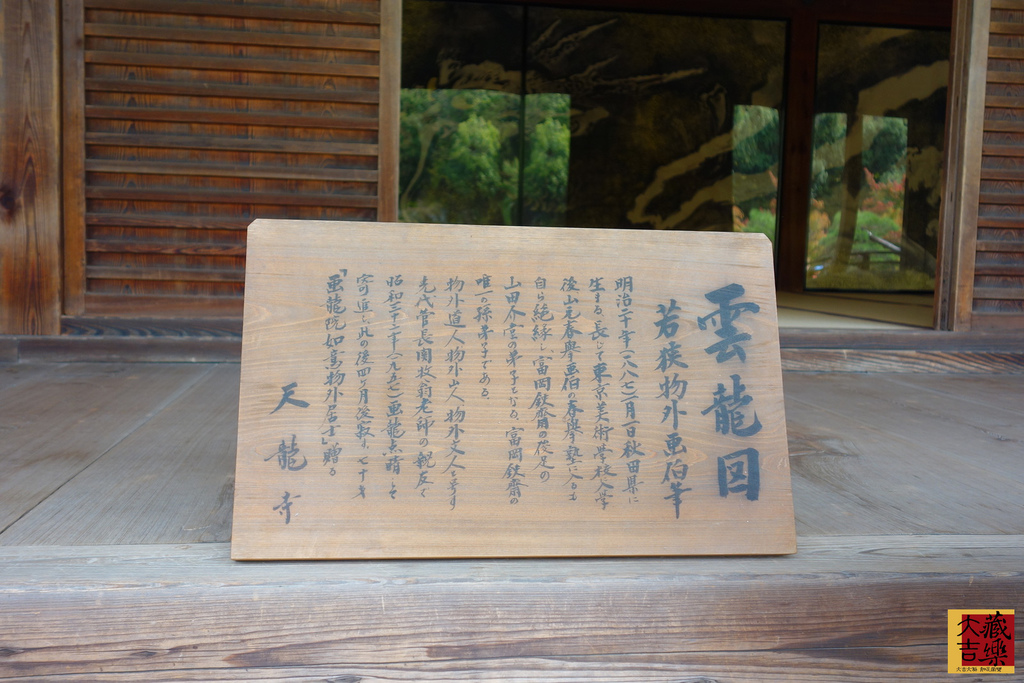 雲龍図
若狭物外画伯筆
明治二十年(一八八七)一月一日秋田県に
生まる 長じて東京美術学校入学
後山元春挙画伯の春挙塾に入るも
自ら絶縁し、富岡鉄齋の俊足の
山田介堂の弟子となる、富岡鉄齋の
唯一の孫弟子である。
物外道人物外山人物外文人と号す
先代管長関牧翁老師の親友で
昭和三十二年(一九五七)画龍点睛し
寄進、此の後四ヶ月後寂す、七十才
「画龍院如意物外居士」贈る
天龍寺
大吉
藏樂